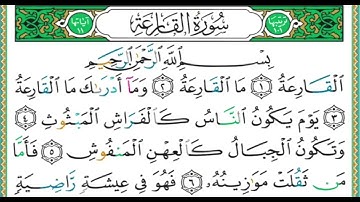 سُورَةُ القَارِعَةِ
بِسْمِ اللَّهِ الرَّحْمَٰنِ الرَّحِيمِ
الْقَارِعَةُ ۝١ مَا الْقَارِعَةُ ۝٢ وَمَآ أَدْرَىٰكَ مَا الْقَارِعَةُ
۝٣ يَوْمَ يَكُونُ النَّاسُ كَالْفَرَاشِ الْمَبْثُوثِ ۝٤
وَتَكُونُ الْجِبَالُ كَالْعِهْنِ الْمَنفُوشِ ۝٥ فَأَمَّا
مَن ثَقُلَتْ مَوَٰزِينُهُ ۝٦ فَهُوَ فِي عِيشَةٍ رَّاضِيَةٍ